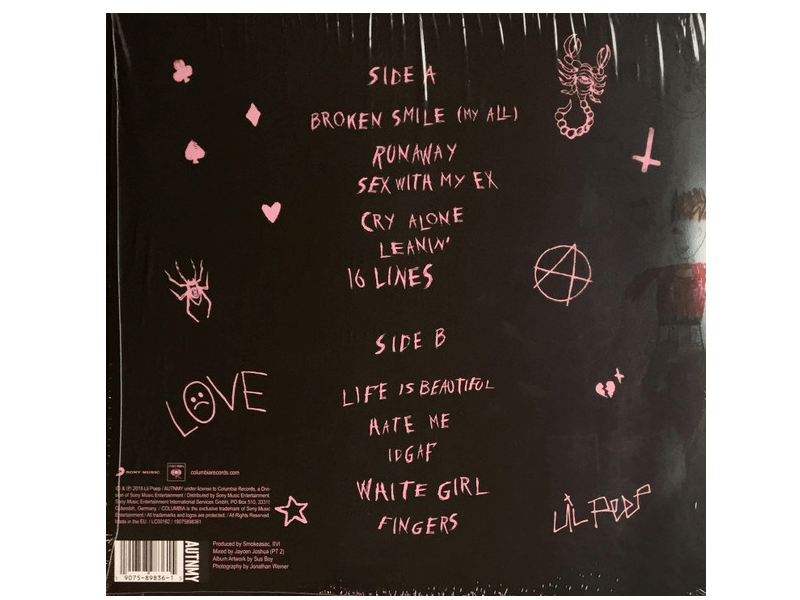 SIDE A
BROKEN SMILE (MY ALL)
RUNAWAY
SEX WITH MY EX
CRY ALONE
LEANIN'
16 LINES
SIDE B
LIFE IS BEAUTIFUL
HATE ME
IDGAF
WHITE GIRL
FINGERS
LOVE
LIL PEEP
SONY MUSIC
COLUMBIA
columbiarecords.com
© & ℗ 2018 Lil Peep / AUTNMY under license to Columbia Records, a Divi-
sion of Sony Music Entertainment / Distributed by Sony Music Entertainment.
Sony Music Entertainment International Services GmbH, PO Box 510, 33311
Gütersloh, Germany. / COLUMBIA is the exclusive trademark of Sony Music
Entertainment / All trademarks and logos are protected. / All Rights Reserved
Made in the EU. / LC00162 / 19075898361
Produced by Smokeasac, IIVI
Mixed by Jaycen Joshua (PT 2)
Album Artwork by Sus Boy
Photography by Jonathan Weiner
AUTNMY
9075-89836-1